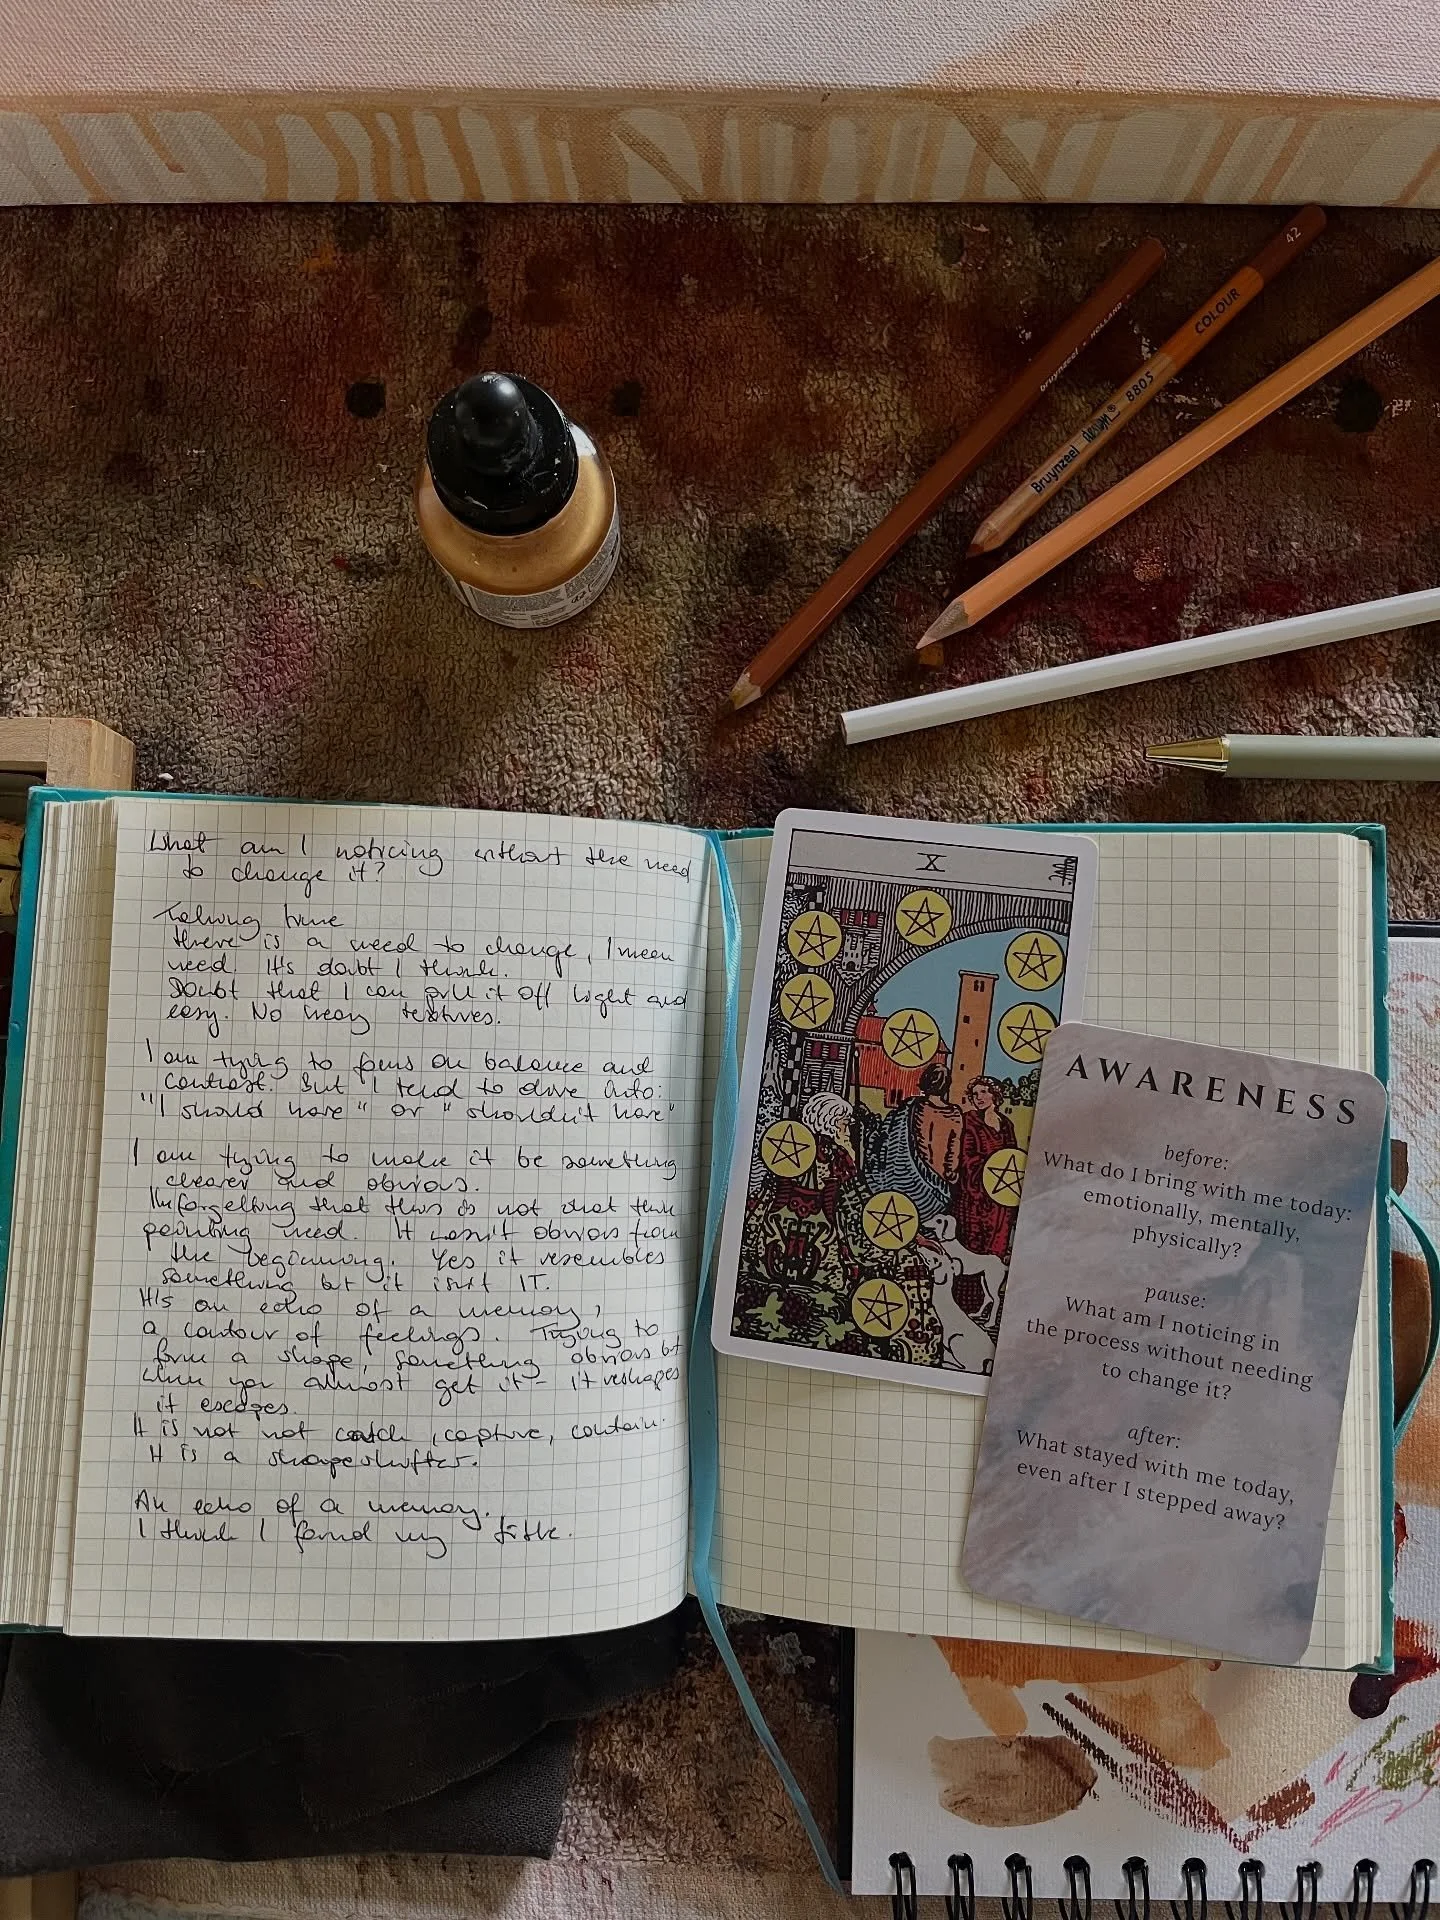 What am I noticing without the need
to change it?
Talking time
there is a need to change, I mean
need. It's doubt I think.
Doubt that I can pull it off light and
easy. No heavy textures.
I am trying to focus on balance and
contrast. But I tend to dive into:
"I should have" or "shouldn't have"
I am trying to make it be something
clearer and obvious.
I'm forgetting that this is not what this
painting need. It wasn't obvious from
the beginning. Yes it resembles
something but it isn't IT.
It's an echo of a memory,
a contour of feelings. Trying to
form a shape, something obvious but
when you almost get it - it reshapes
it escapes.
It is not not catch, capture, contain.
It is a shapeshifter.
An echo of a memory.
I think I found my title.
X
AWARENESS
before:
What do I bring with me today:
emotionally, mentally,
physically?
pause:
What am I noticing in
the process without needing
to change it?
after:
What stayed with me today,
even after I stepped away?
bruynzeel HOLLAND
Bruynzeel design® 8805 COLOUR 42